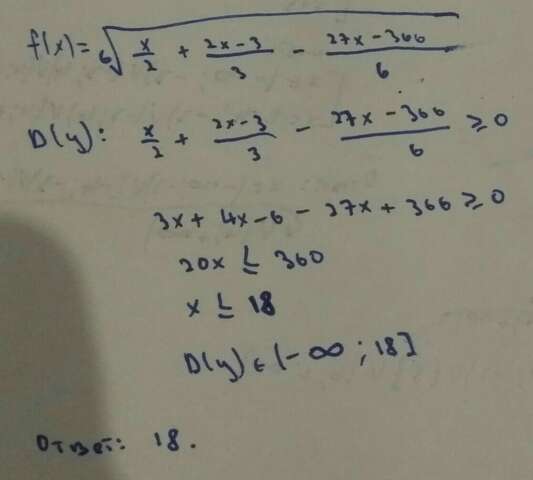 f(x)= ⁶√(x/2 + (2x-3)/3 - (27x-366)/6)
D(y): x/2 + (2x-3)/3 - (27x-366)/6 ≥ 0
3x + 4x-6 - 27x + 366 ≥ 0
20x ≤ 360
x ≤ 18
D(y) ϵ (-∞ ; 18]
Ответ: 18.